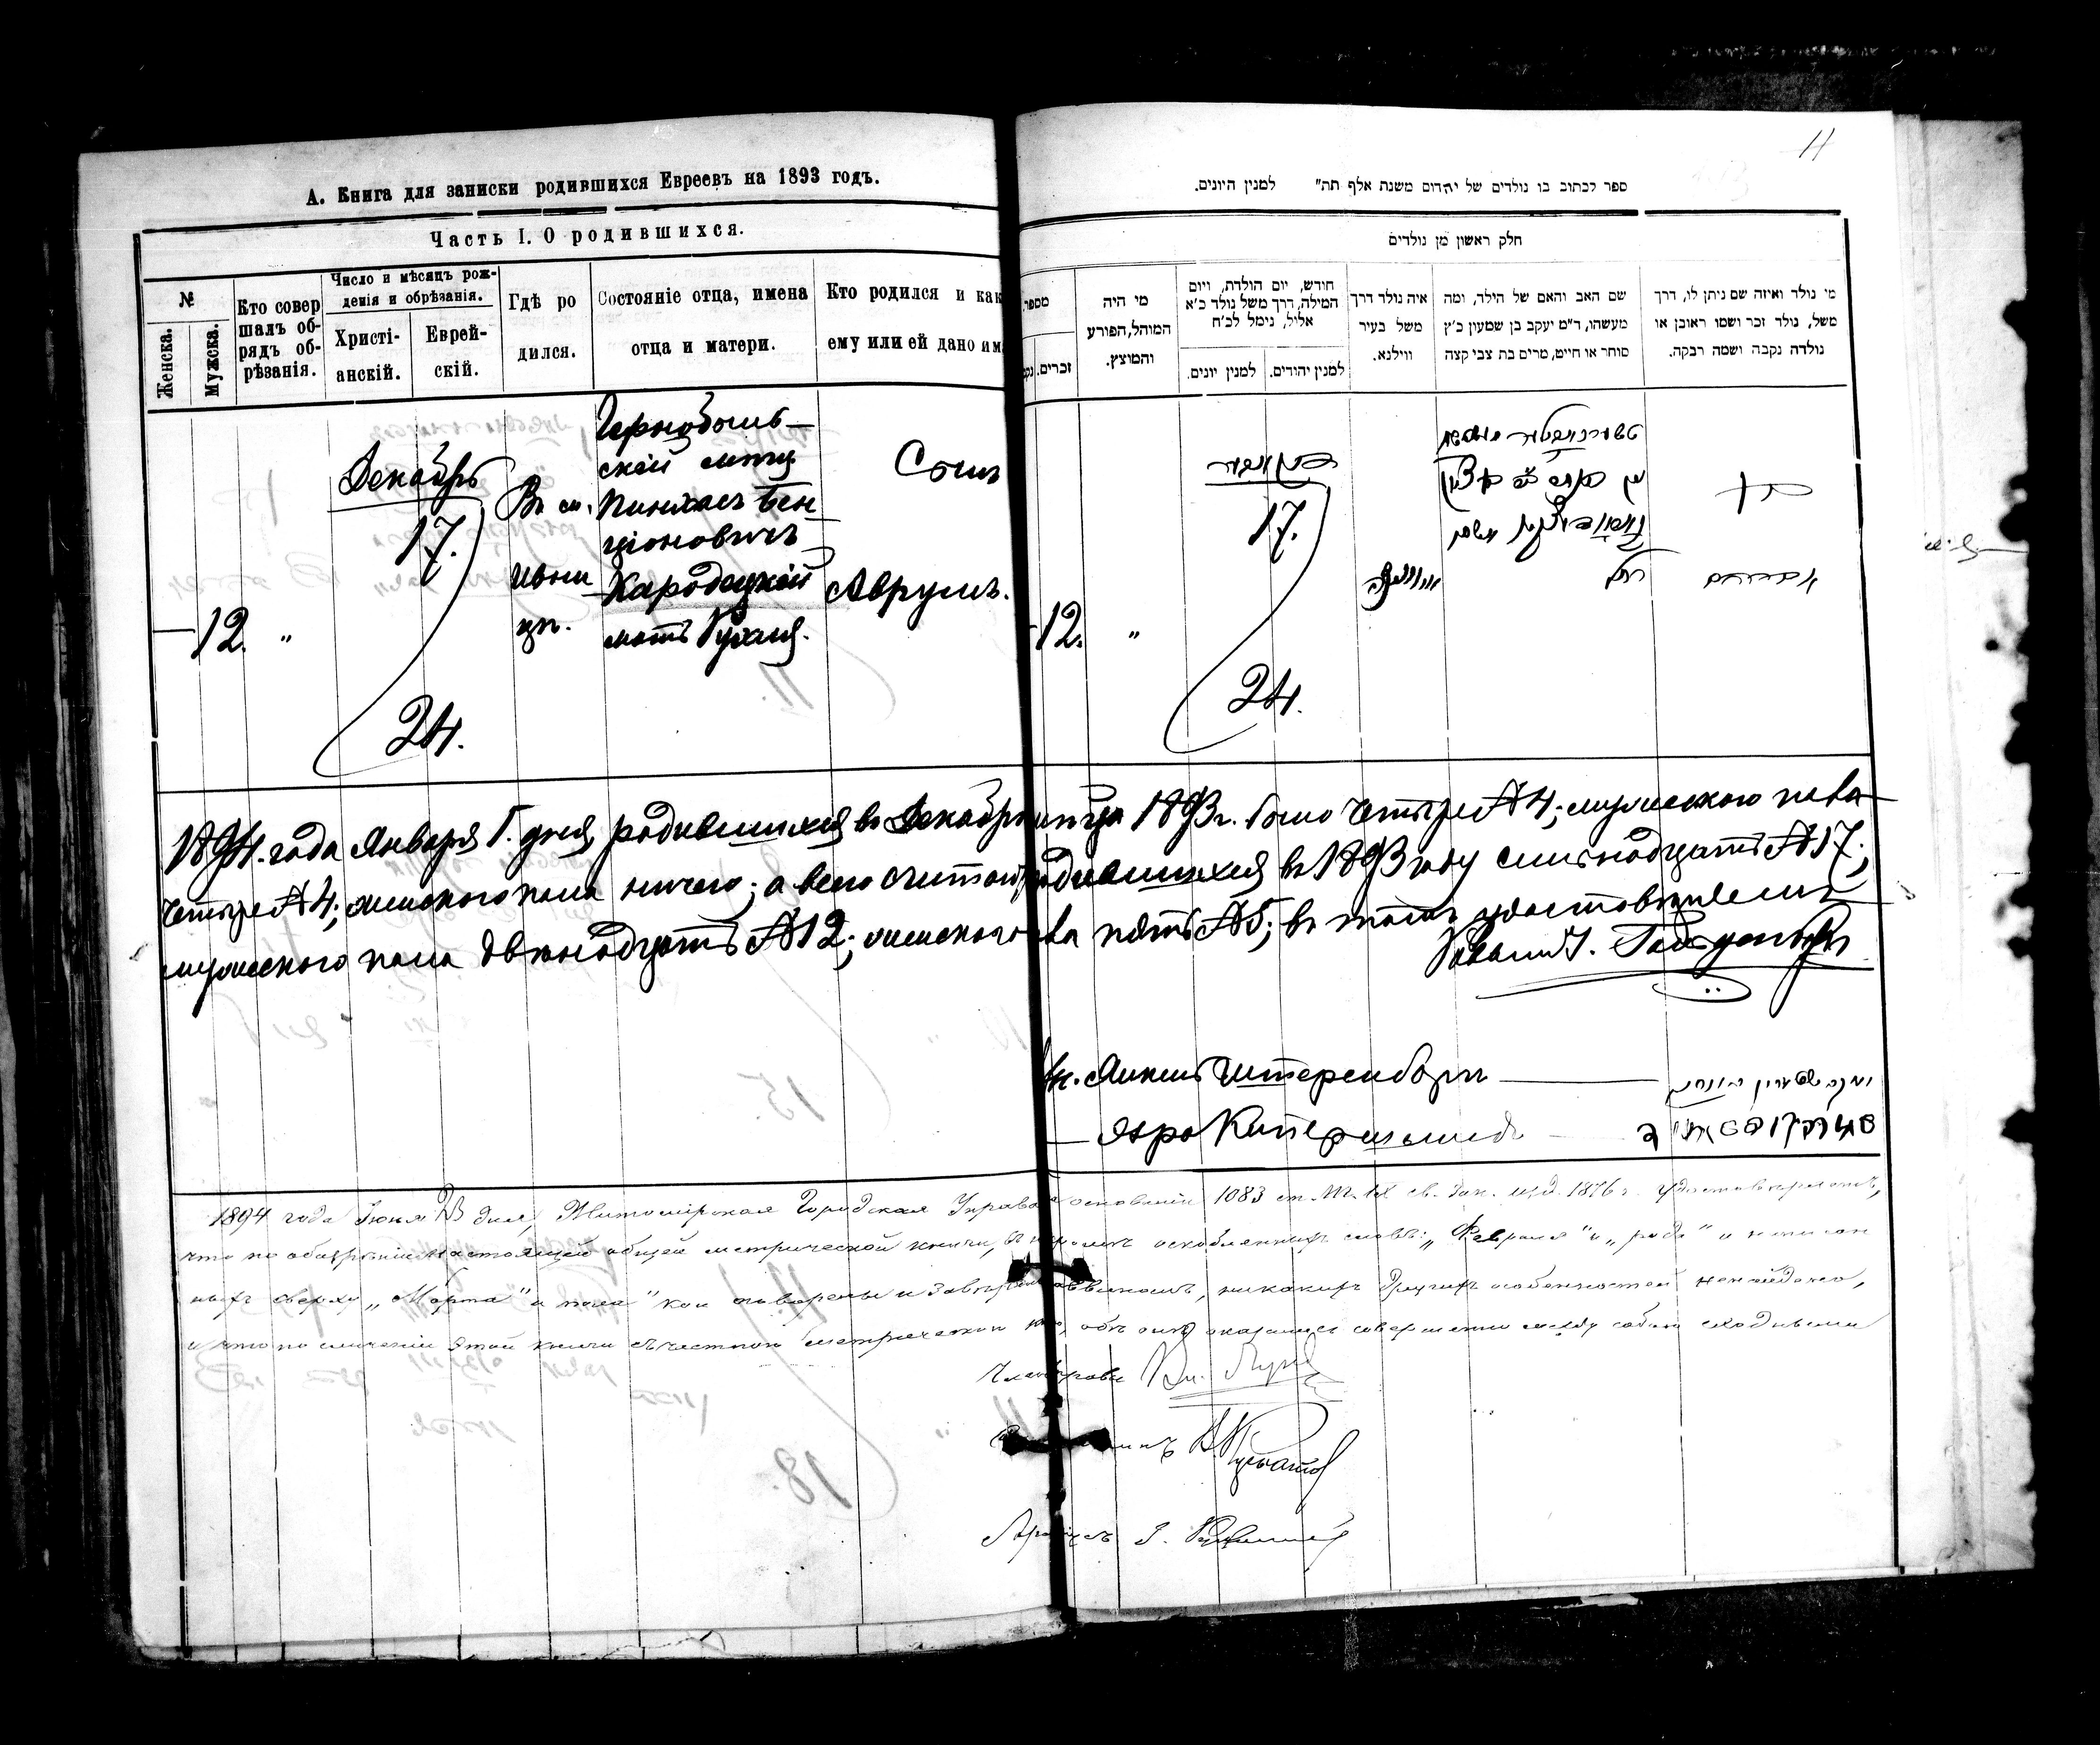 А. Книга для записки родившихся Евреевъ на 1893 годъ.
Часть I. О родившихся.
№
Женска.
Мужска.
Кто совер
шалъ об-
рядъ об-
рѣзанія.
Число и мѣсяцъ рож-
денія и обрѣзанія.
Христі-
анскій.
Еврей-
скій.
Гдѣ ро
дился.
Состояніе отца, имена
отца и матери.
Кто родился и как
ему или ей дано им
—12. „
Декабрь
17.
24.
Въ м.
Ивни
цѣ.
Чернобыль-
скій мѣщ
Пинхасъ Бен
ціоновичъ
Кародецкій
мать Рухля.
Сынъ
Аврумъ.
11
ספר לכתוב בו נולדים של יהדום משנת אלף תת״ למנין היונים.
חלק ראשון מן נולדים
מספר
זכרים.
מי היה
המוהל,הפורע
והמוצץ.
חודש, יום הולדת, ויום
המילה, דרך משל נולד כ״א
אלול, נימל לכ״ח
למנין יהודים.
למנין יונים.
איה נולד דרך
משל בעיר
ווילנא.
שם האב והאם של הילד, ומה
מעשהו, ד״מ יעקב בן שמעון כ״ץ
סוחר או חייט, מרים בת צבי קצה
מי נולד ואיזה שם ניתן לו, דרך
משל, נולד זכר ושמו ראובן או
נולדה נקבה ושמה רבקה.
12. „
דעקאבער
17.
24.
רחל
בן
אברהם
1894. года Января 1. дня, родившихся въ Декабрѣ мцѣ 1893 г. было четыре №4; мужеского пола
четыре №4; женского пола ничего; а всего считаю родившихся въ 1893 году семьнадцать №17;
мужеского пола двѣнадцать №12; женского пола пять №5; въ томъ удостовѣряемъ
Раввинъ
Янкель Штеренбергъ —
יענקל שטערין בערג
— Аврo Купершмидъ —
1894 года Іюня дня, Житомірская Городская Управа основаніи 1083 ст. т. IX св. Зак. изд. 1876 г. удостовѣряетъ,
что по обозрѣніи настоящей общей метрической книги, въ кромѣ оскобленныхъ словъ: „Февраля" и „рода" и написан
ныхъ сверху „Марта" и „пола" кои оговорены и завѣрены раввиномъ, никакихъ другихъ особенностей ненайдено,
и что по сличеніи этой книги съ частною метрическою, обѣ онѣ оказались совершенно между собою сходными
Членъ Управы